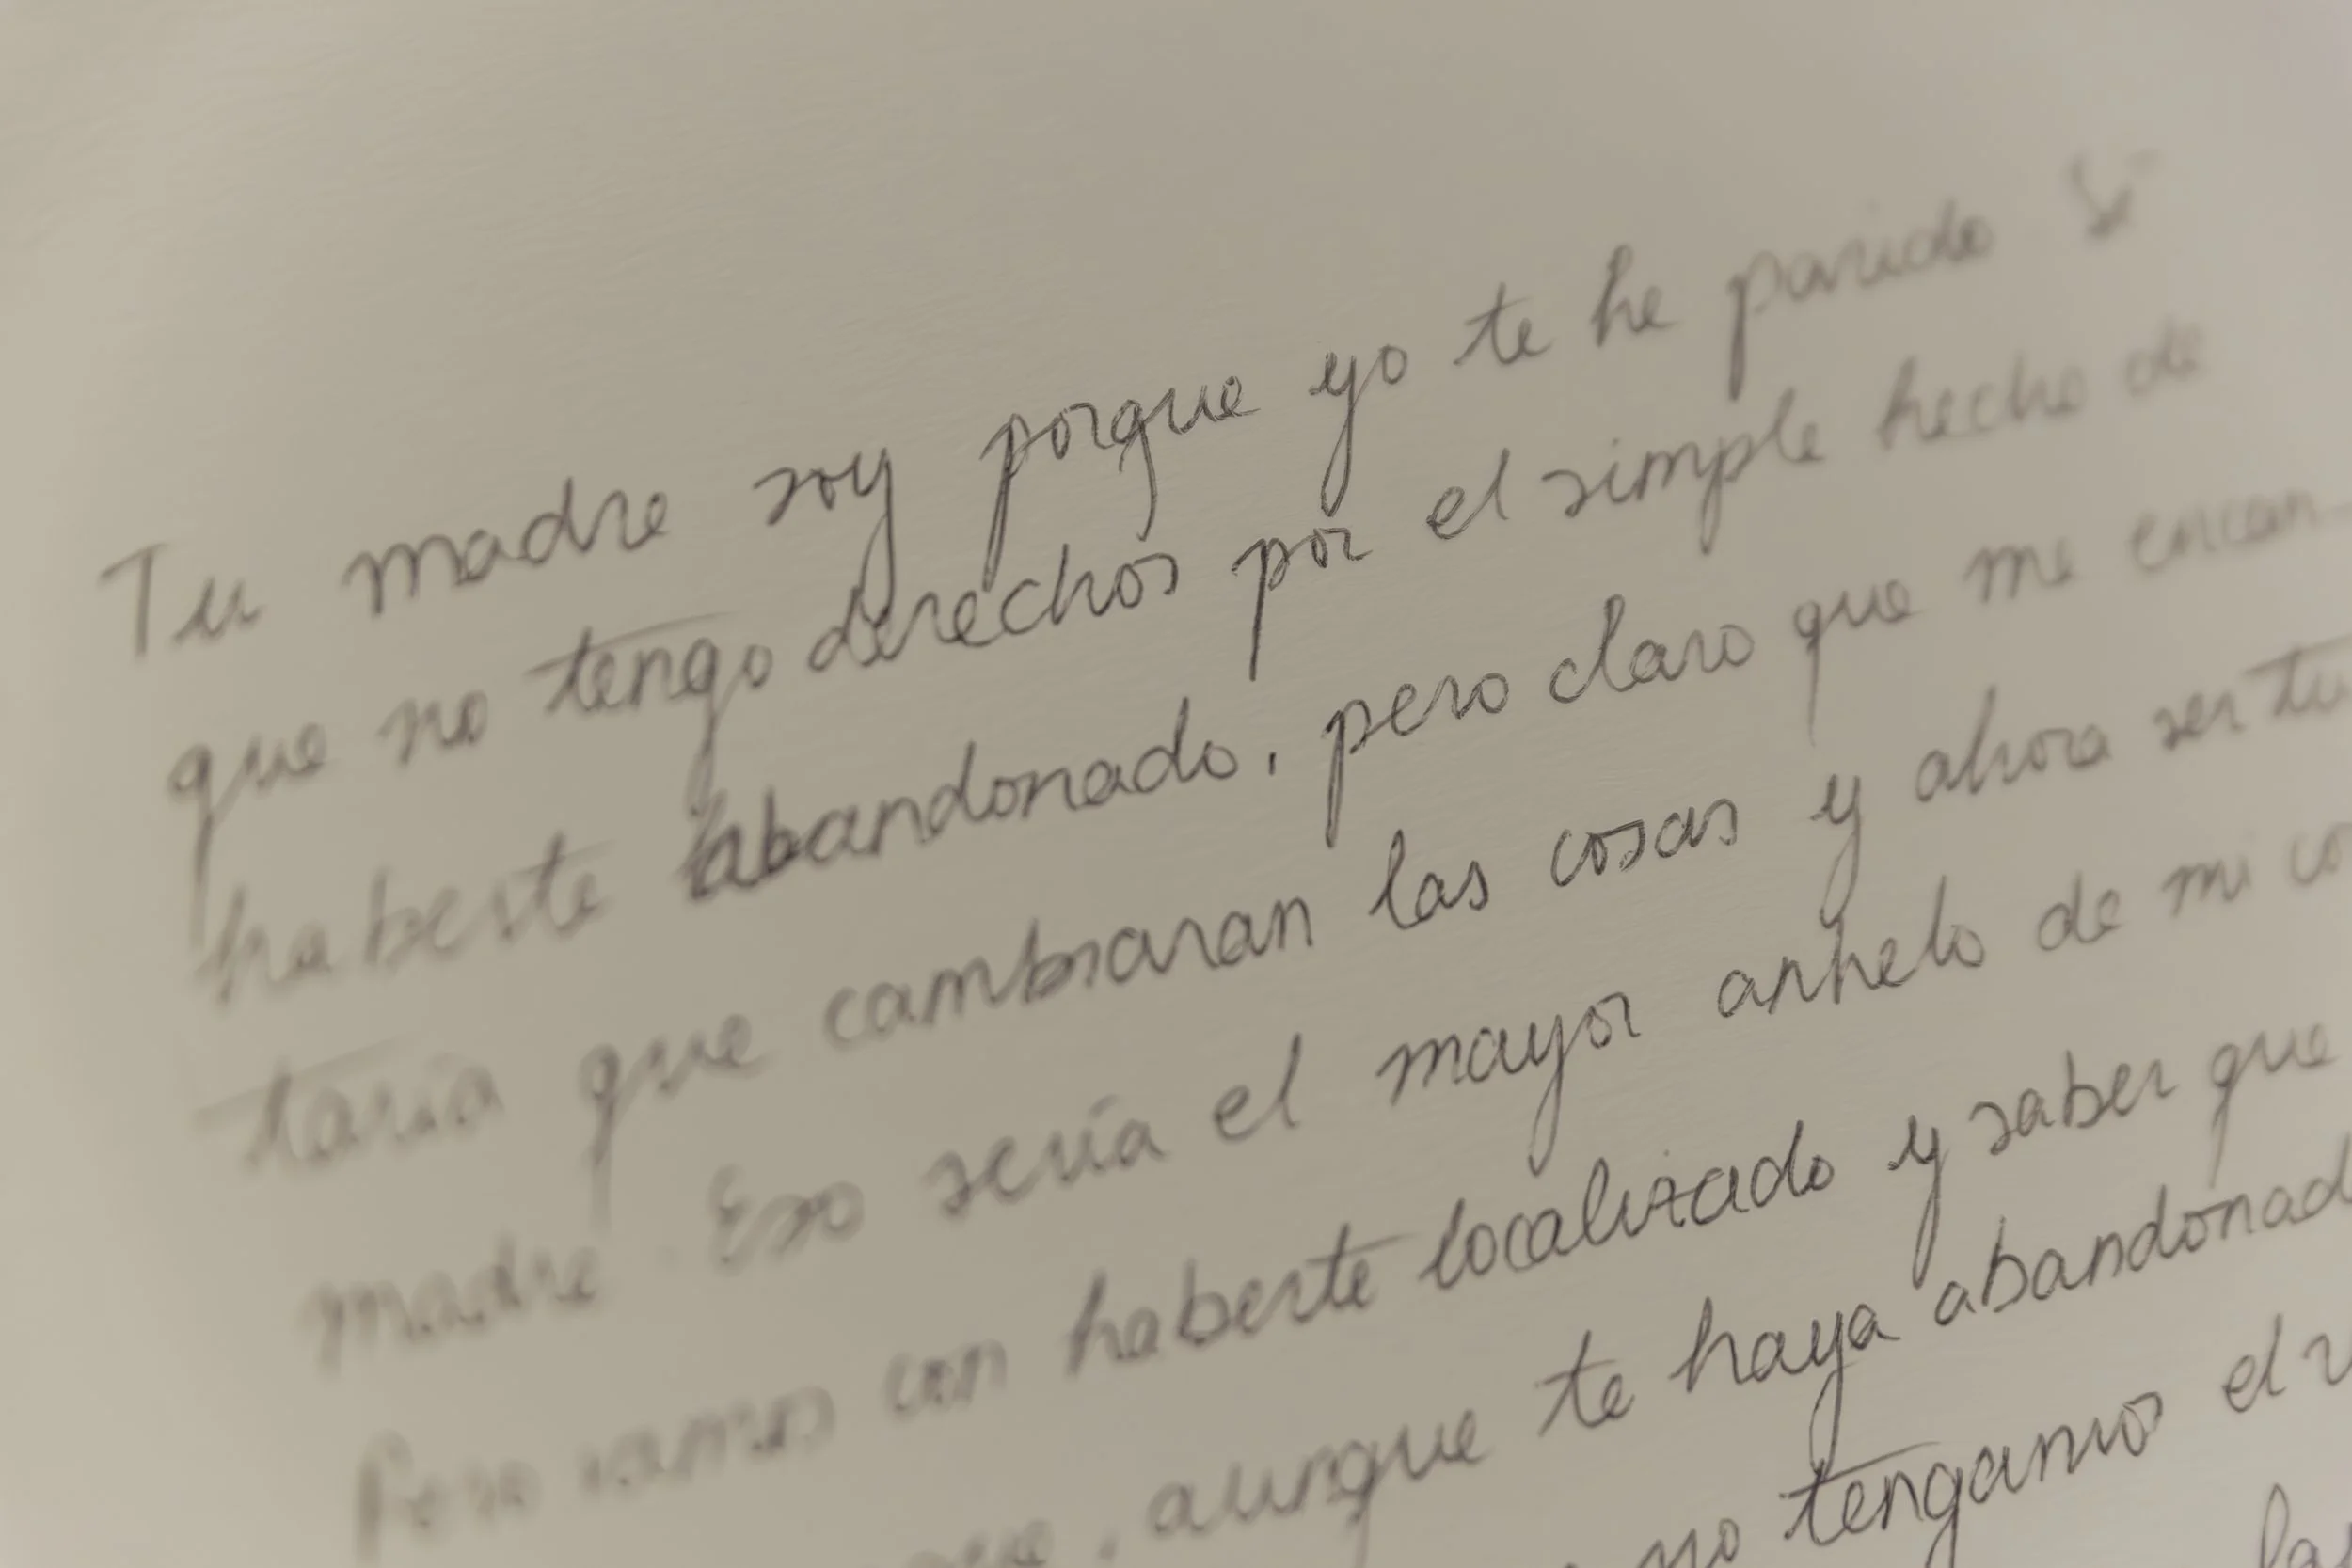 Tu madre soy porque yo te he parido Sé
que no tengo derechos por el simple hecho de
haberte abandonado, pero claro que me encan-
taría que cambiaran las cosas y ahora ser tu
madre. Eso sería el mayor anhelo de mi co
Pero vamos con haberte localizado y saber que
que, aunque te haya abandonad
no tengamos el v
la